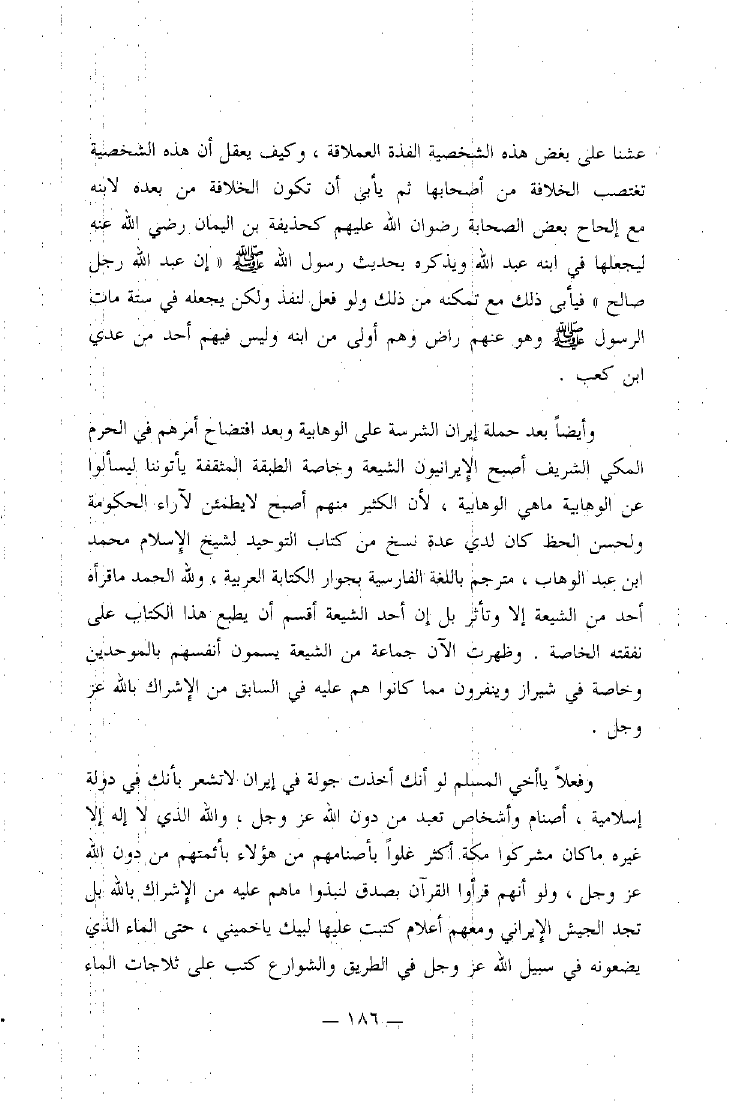 عشنا على بغض هذه الشخصية الفذة العملاقة ، وكيف يعقل أن هذه الشخصية
تغتصب الخلافة من أصحابها ثم يأبى أن تكون الخلافة من بعده لابنه
مع إلحاح بعض الصحابة رضوان الله عليهم كحذيفة بن اليمان رضي الله عنه
ليجعلها في ابنه عبد الله ويذكره بحديث رسول الله ﷺ « إن عبد الله رجل
صالح » فيأبى ذلك مع تمكنه من ذلك ولو فعل لنفذ ولكن يجعله في ستة مات
الرسول ﷺ وهو عنهم راض وهم أولى من ابنه وليس فيهم أحد من عدي
ابن كعب .
وأيضاً بعد حملة إيران الشرسة على الوهابية وبعد افتضاح أمرهم في الحرم
المكي الشريف أصبح الإيرانيون الشيعة وخاصة الطبقة المثقفة يأتوننا ليسألوا
عن الوهابية ماهي الوهابية ، لأن الكثير منهم أصبح لايطمئن لآراء الحكومة
ولحسن الحظ كان لدي عدة نسخ من كتاب التوحيد لشيخ الإسلام محمد
ابن عبد الوهاب ، مترجم باللغة الفارسية بجوار الكتابة العربية ، ولله الحمد ماقرأه
أحد من الشيعة إلا وتأثر بل إن أحد الشيعة أقسم أن يطبع هذا الكتاب على
نفقته الخاصة . وظهرت الآن جماعة من الشيعة يسمون أنفسهم بالموحدين
وخاصة في شيراز وينفرون مما كانوا هم عليه في السابق من الإشراك بالله عز
وجل .
وفعلاً ياأخي المسلم لو أنك أخذت جولة في إيران لاتشعر بأنك في دولة
إسلامية ، أصنام وأشخاص تعبد من دون الله عز وجل ، والله الذي لا إله إلا
غيره ماكان مشركوا مكة أكثر غلواً بأصنامهم من هؤلاء بأئمتهم من دون الله
عز وجل ، ولو أنهم قرأوا القرآن بصدق لنبذوا ماهم عليه من الإشراك بالله بل
تجد الجيش الإيراني ومعهم أعلام كتبت عليها لبيك ياخميني ، حتى الماء الذي
يضعونه في سبيل الله عز وجل في الطريق والشوارع كتب على ثلاجات الماء
— ١٨٦ —